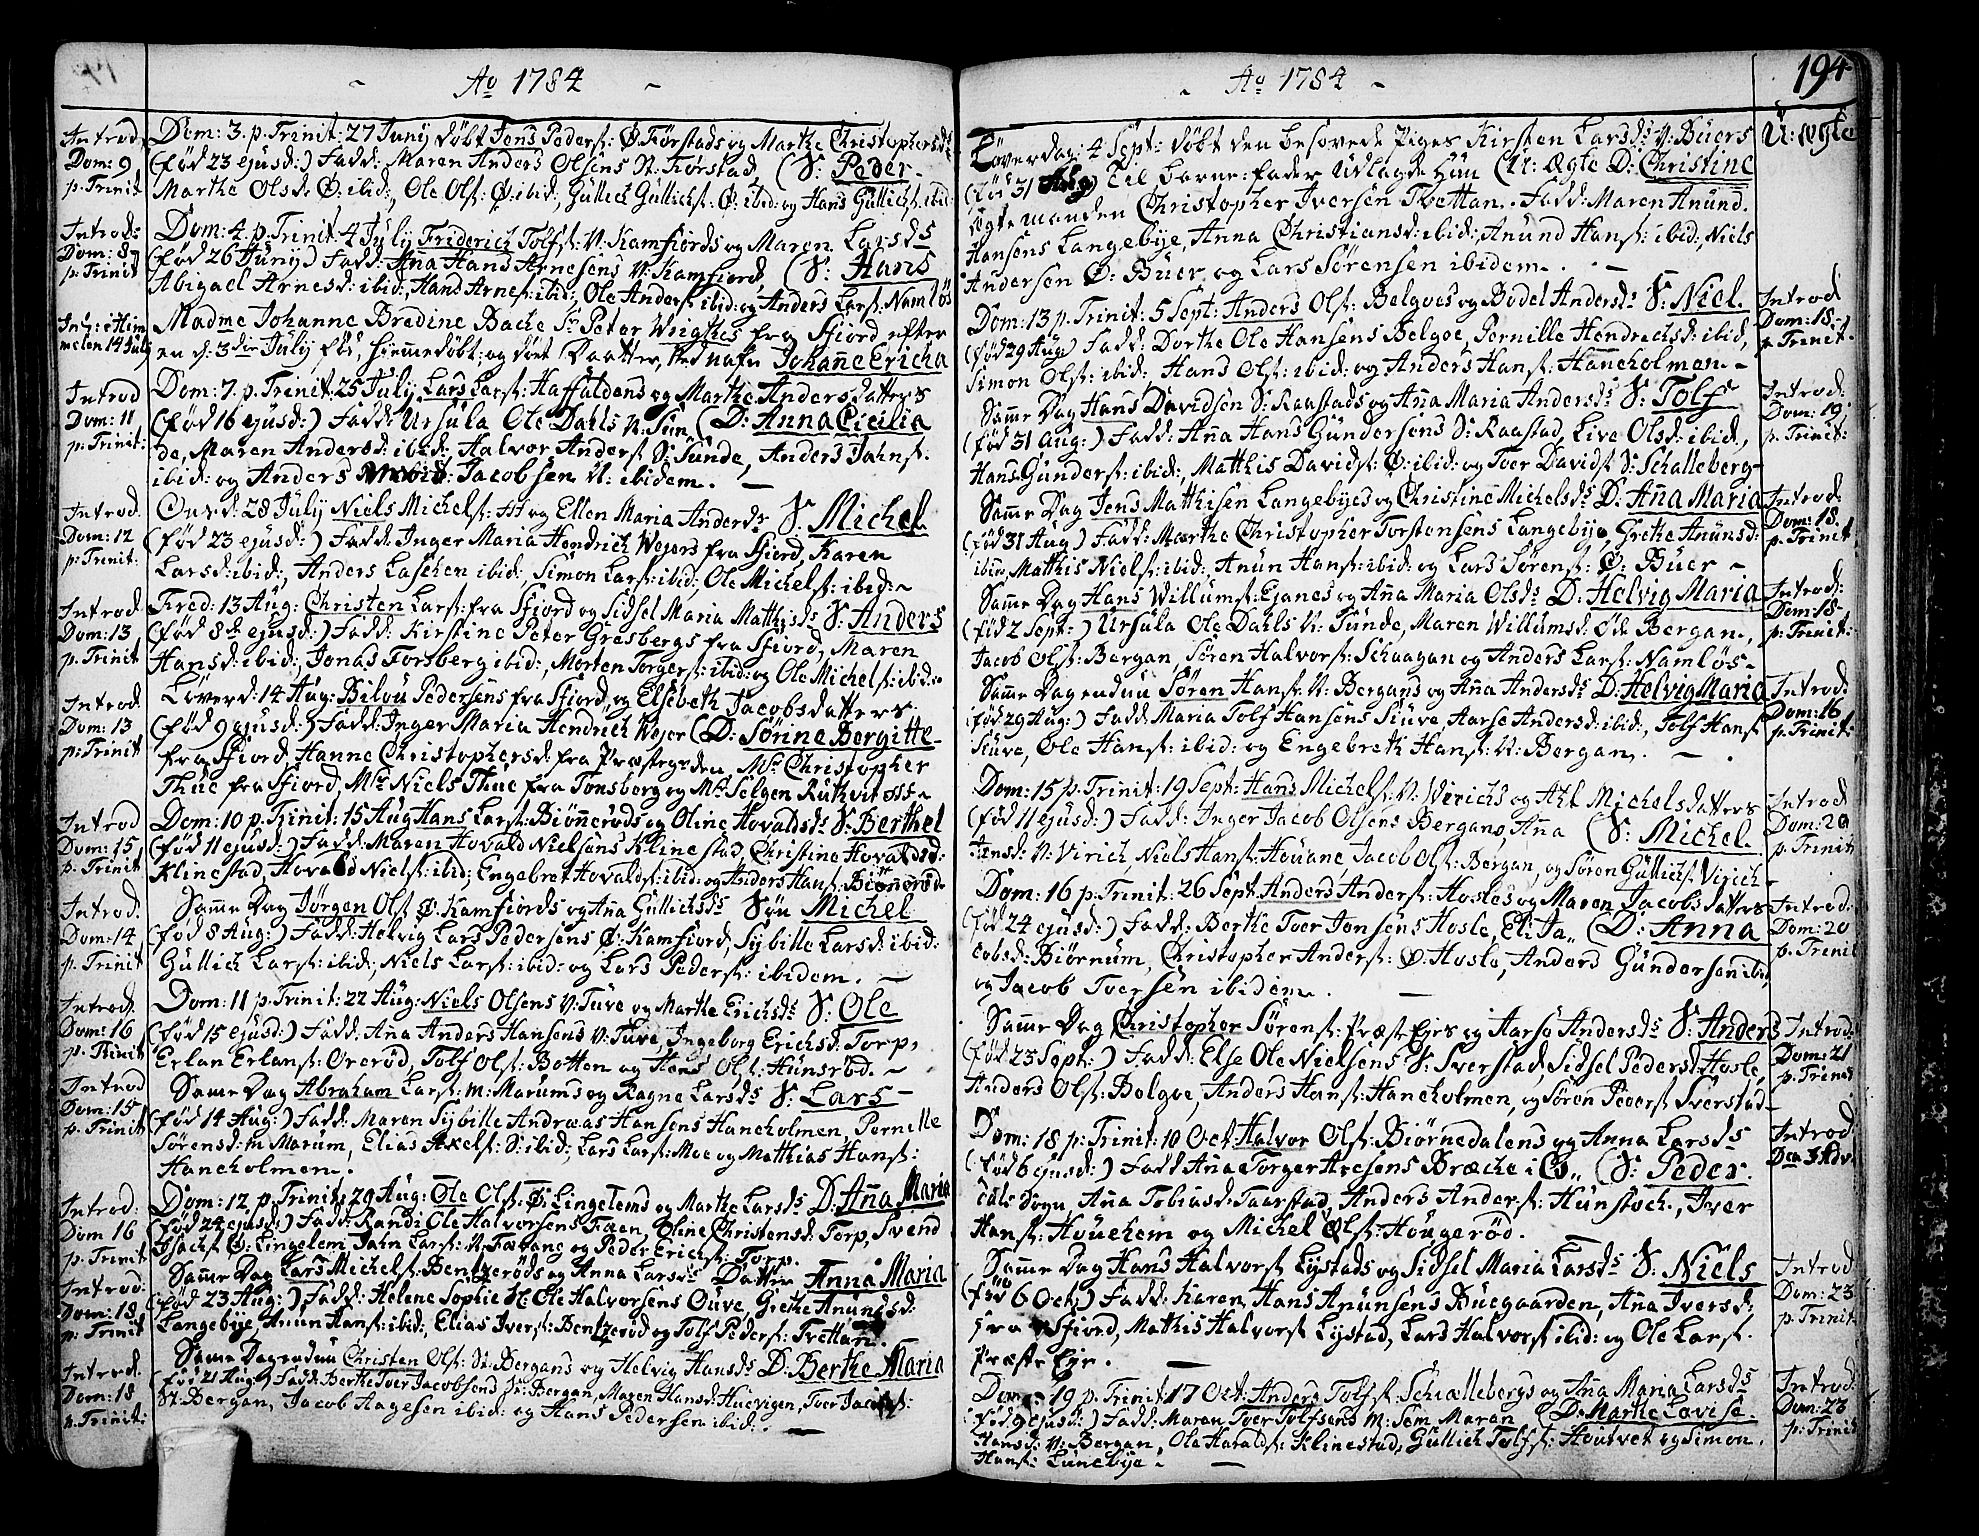 Ao 1784
Introd. Dom: 9 p. Trinit
Dom: 3. p. Trinit: 27 Junij døbt Jens Peders: Ø. Førstads og Marthe Christophersds
(fød 23 ejusd:) Fadd: Maren Anders Olsens N. Førstad, (S: Peder
Marthe Olsd: Ø: ibid:, Ole Ols: Ø: ibid:, Gullich Gullichs: Ø: ibid: og Hans Gullichs: ibid:
Introd: Dom: 8 p: Trinit
Dom: 4. p. Trinit 4 July Friderich Tolfs: N: Kamfiords og Maren Larsds
(fød 26 Juny) Fadd: Aña Hans Arnesens N: Kamfiord, (S: Hans
Abigael Arnesd: ibid:, Hans Arnes: ibid:, Ole Anders: ibid: og Anders Lars: Namløs
Int: i Himmelen 14 July
Madme Johanne Bredine Bache Sr. Peter Wrigthes fra Sfiord efter
en d: 3die July fød, hjemmedøbt og død Daatter, ved nafn Johañe Ericha
Introd Dom: 11 p: Trinit:
Dom: 7. p. Trinit: 25 July Lars Lars: Haffaldens og Marthe Andersdatters
(fød 16 ejusd:) Fadd: Ursula Ole Dahls N: Sun (D: Anna Cicilia
de, Maren Andersd: ibid:, Halvor Anders: S: Sunde, Anders Jahns:
ibid: og Anders Jacobsen N: ibidem.
Introd. Dom: 12 p: Trinit:
Onsd: 28 July Niels Michels: og Ellen Maria Andersds S: Michel
(fød 23 ejusd:) Fadd: Inger Maria Hendrich Wejers fra Sfiord, Karen
Larsd: ibid:, Anders Laschen ibid:, Simon Lars: ibid:, Ole Michels: ibid:
Introd. Dom: 13 p: Trinit
Fred: 13 Aug: Christen Lars: fra Sfiord og Sidsel Maria Matthisds S: Anders
(fød 8de ejusd:) Fadd: Kirstine Peter Gresbergs fra Sfiord, Maren
Hansd: ibid:, Jonas Forsberg ibid:, Morten Torgers: ibid: og Ole Michels: ibid:
Introd. Dom: 13 p: Trinit
Løverd: 14 Aug: Bilou Pedersens fra Sfiord og Elsebeth Jacobsdatters
(fød 9 ejusd:) Fadd: Inger Maria Hendrich Wejer (D: Sørine Bergitte
fra Sfiord, Hanne Christophersd: fra Præstegrden, Mr. Christopher
Thue fra Sfiord, Mr. Niels Thue fra Tonsberg og Mr. Selgen
Introd Dom: 15 p. Trinit:
Dom: 10 p. Trinit: 15 Aug Hans Lars: Biønnerøds og Oline Hovaldsds S: Berthel
(fød 11 ejusd:) Fadd: Maren Hovald Nielsens Klinestad, Christine Hovaldsd:
Klinestad, Hovald Niels: ibid:, Engebret Hovalds: ibid: og Anders Hans: Biønnerød
Introd. Dom: 14 p. Trinit
Samme Dag Jørgen Ols: Ø: Kamfiords og Aña Gullichsds Søn Michel
(fød 8 Aug:) Fadd: Helvig Lars Pedersens Ø: Kamfiord, Sybille Larsd: ibid:
Gullich Lars: ibid:, Niels Lars: ibid: og Lars Peders: ibidem.
Introd. Dom: 16 p: Trinit
Dom: 11 p. Trinit: 22 Aug: Niels Olsens N: Tuve og Marthe Erichsds S: Ole
(fød 15 ejusd:) Fadd: Aña Anders Hansens N: Tuve, Ingeborg Erichsd: Torp,
Erlan Erlans: Orerød, Tolf Ols: Botten og Hans Ols: Hunsrød.
Introd Dom: 15 p. Trinit
Same Dag Abraham Lars: M: Marums og Ragne Larsds S: Lars
(fød 14 Aug:) Fadd: Maren Sybille Andreas Hansens Haneholmen, Pernelle
Sørensd: M Marum, Elias Axels: S: ibid:, Lars Lars: Moe og Matthias Hans:
Haneholmen.
Introd. Dom 16 p: Trinit:
Dom: 12 p. Trinit: 29 Aug: Ole Ols: Ø: Lingelems og Marthe Larsds D: Aña Maria
(fød 24 ejusd:) Fadd: Randi Ole Halvorsens Faen, Oline Christensd: Torp, Svend
Isachs: Ø: Lingelem, Jahn Lars: N: Færang og Peder Erichs: Torp.
Introd: Dom: 18 p: Trinit
Same Dag Lars Michels: Bentzerøds og Anna Larsds Datter Anna Maria
(fød 23 Aug:) Fadd: Helene Sophie H: Ole Halvorsens Ouve, Grethe Anundsd:
Langebye, Anun Hans: ibid:, Elias Ivers: Bentzerød og Tolf Peders: Trettan.
Introd. Dom: 18 p. Trinit:
Same Dag endnu Christen Ols: St: Bergans og Helvig Hansds D: Berthe Maria
(fød 21 Aug:) Fadd: Berthe Iver Jacobsens St: Bergan, Maren Hansd: Huevigen, Iver Jacobs:
St: Bergan, Jacob Aagesen ibid: og Hans Pedersen ibid:.
Ao 1784
194
U: ægte
Løverdag: 4 Sept: døbt den besovede Piges Kirsten Larsds V: Buers
(fød 31 Aug) Til Barne: fader Udlagde hun (U: Ægte D: Christine
Ægtemanden Christopher Iversen Trettan. Fadd: Maren Anund
Hansens Langebye, Anna Christiansd: ibid:, Anund Hans: ibid:, Niels
Andersen Ø: Buer og Lars Sørensen ibidem.
Introd Dom: 18 p Trinit.
Dom: 13 p. Trinit: 5 Sept: Anders Ols: Belgoes og Bodel Andersds S: Niel.
(fød 29 Aug) Fadd: Dorthe Ole Hansens Belgoe, Pernille Hendrichsd: ibid:,
Simon Ols: ibid: Hans Ols: ibid: og Anders Hans: Haneholmen.
Introd: Dom: 19 p: Trinit:
Samme Dag Hans Davidsen S: Raastads og Aña Maria Andersds S: Tolf
(fød 31 Aug:) Fadd: Aña Hans Gundersens S: Raastad, Live Olsd: ibid:,
Hans Gunders: ibid:, Matthis Davids: Ø: ibid: og Iver Davids: S: Schalleberg
Introd. Dom: 18. p: Trinit
Samme Dag Jens Matthisen Langebyes og Christine Michelsds D: Aña Maria
(fød 31 Aug) Fadd: Marthe Christopher Torstensens Langebye, Grethe Anunsd:
ibid, Matthis Niels: ibid: Anun Hans: ibid: og Lars Sørens: Ø: Buer
Introd: Dom: 18 p. Trinit:
Samme Dag Hans Willums: Ejanes og Aña Maria Olsds D: Helvig Maria
(fød 2 Sept:) Ursula Ole Dahls N: Sunde, Maren Willumsd: Øde Bergan,
Jacob Ols: Bergan, Søren Halvors: Schaagan og Anders Lars: Namløs
Introd. Dom: 16 p: Trinit:
Samme Dag endnu Søren Hans: N: Bergans og Aña Andersds D: Helvig Maria
(fød 29 Aug:) Fadd: Maria Tolf Hansens Siuve, Aarse Andersd: ibid:, Tolf Hans:
Siuve, Ole Hans: ibid: og Engebreth Hans: N: Bergan.
Introd Dom: 20 p. Trinit:
Dom: 15 p. Trinit: 19 Sept: Hans Michels: N: Virichs og Ahl Michelsdatters
(fød 11 ejusd:) Fadd: Inger Jacob Olsens Bergan, Aña (S: Michel.
Hansd: N: Virich, Niels Hans: Houane, Jacob Ols: Bergan, og Søren Gullichs: Virich
Introd: Dom: 20 p: Trinit
Dom: 16 p. Trinit: 26 Sept Anders Anders: Hosles og Maren Jacobsdatters
(fød 24 ejusd:) Fadd: Berthe Iver Jonsens Hosle, Eli Ja,, (D: Anna
cobsd: Biørnum, Christopher Anders: Ø: Hosle, Anders Gundersen ibid:,
og Jacob Iversen ibidem.
Introd: Dom: 21 p: Trinit
Samme Dag Christopher Sørens: Præst Ejes og Aarse Andersds S: Anders
(fød 23 Sept:) Fadd: Else Ole Nielsens S: Sverstad, Sidsel Pedersd: Hosle,
Anders Ols: Belgoe, Anders Hans: Haneholmen, og Søren Peders: Sverstad
Introd. Den 3 Adv.
Dom: 18 p: Trinit: 10 Oct Halvor Ols: Biørnedalens og Anna Larsds
(fød 6 ejusd:) Fadd Aña Torger Aresens Bræche i (S: Peder.
Sogn, Aña Tobiasd: Taarstad, Anders Anders: Hunstoch, Iver
Hans: Houehem og Michel Ols: Hougerød.
Introd: Dom: 23 p: Trinit:
Samme Dag Hans Halvors: Lystads og Sidsel Maria Larsds S: Niels
(fød 6 Oct) Fadd: Karen Hans Anunsens Buegaarden, Aña Iversd:
fra Sfiord, Mathis Halvors: Lystad, Lars Halvors: ibid: og Ole Lars:
Præste Eje.
Introd: Dom: 23 p: Trinit
Dom: 19 p. Trinit 17 Oct: Anders Tolfs: Schiellebergs og Aña Maria Larsds
(fød 9 ejusd:) Fadd: Maran Iver Tolfsens M: Sem Maren (D: Marthe Lovise.
Hansd: N: Bergan, Ole Haralds: Klinestad, Gullich Tolfs: Houtvet og Simon
Hans: Lunebye